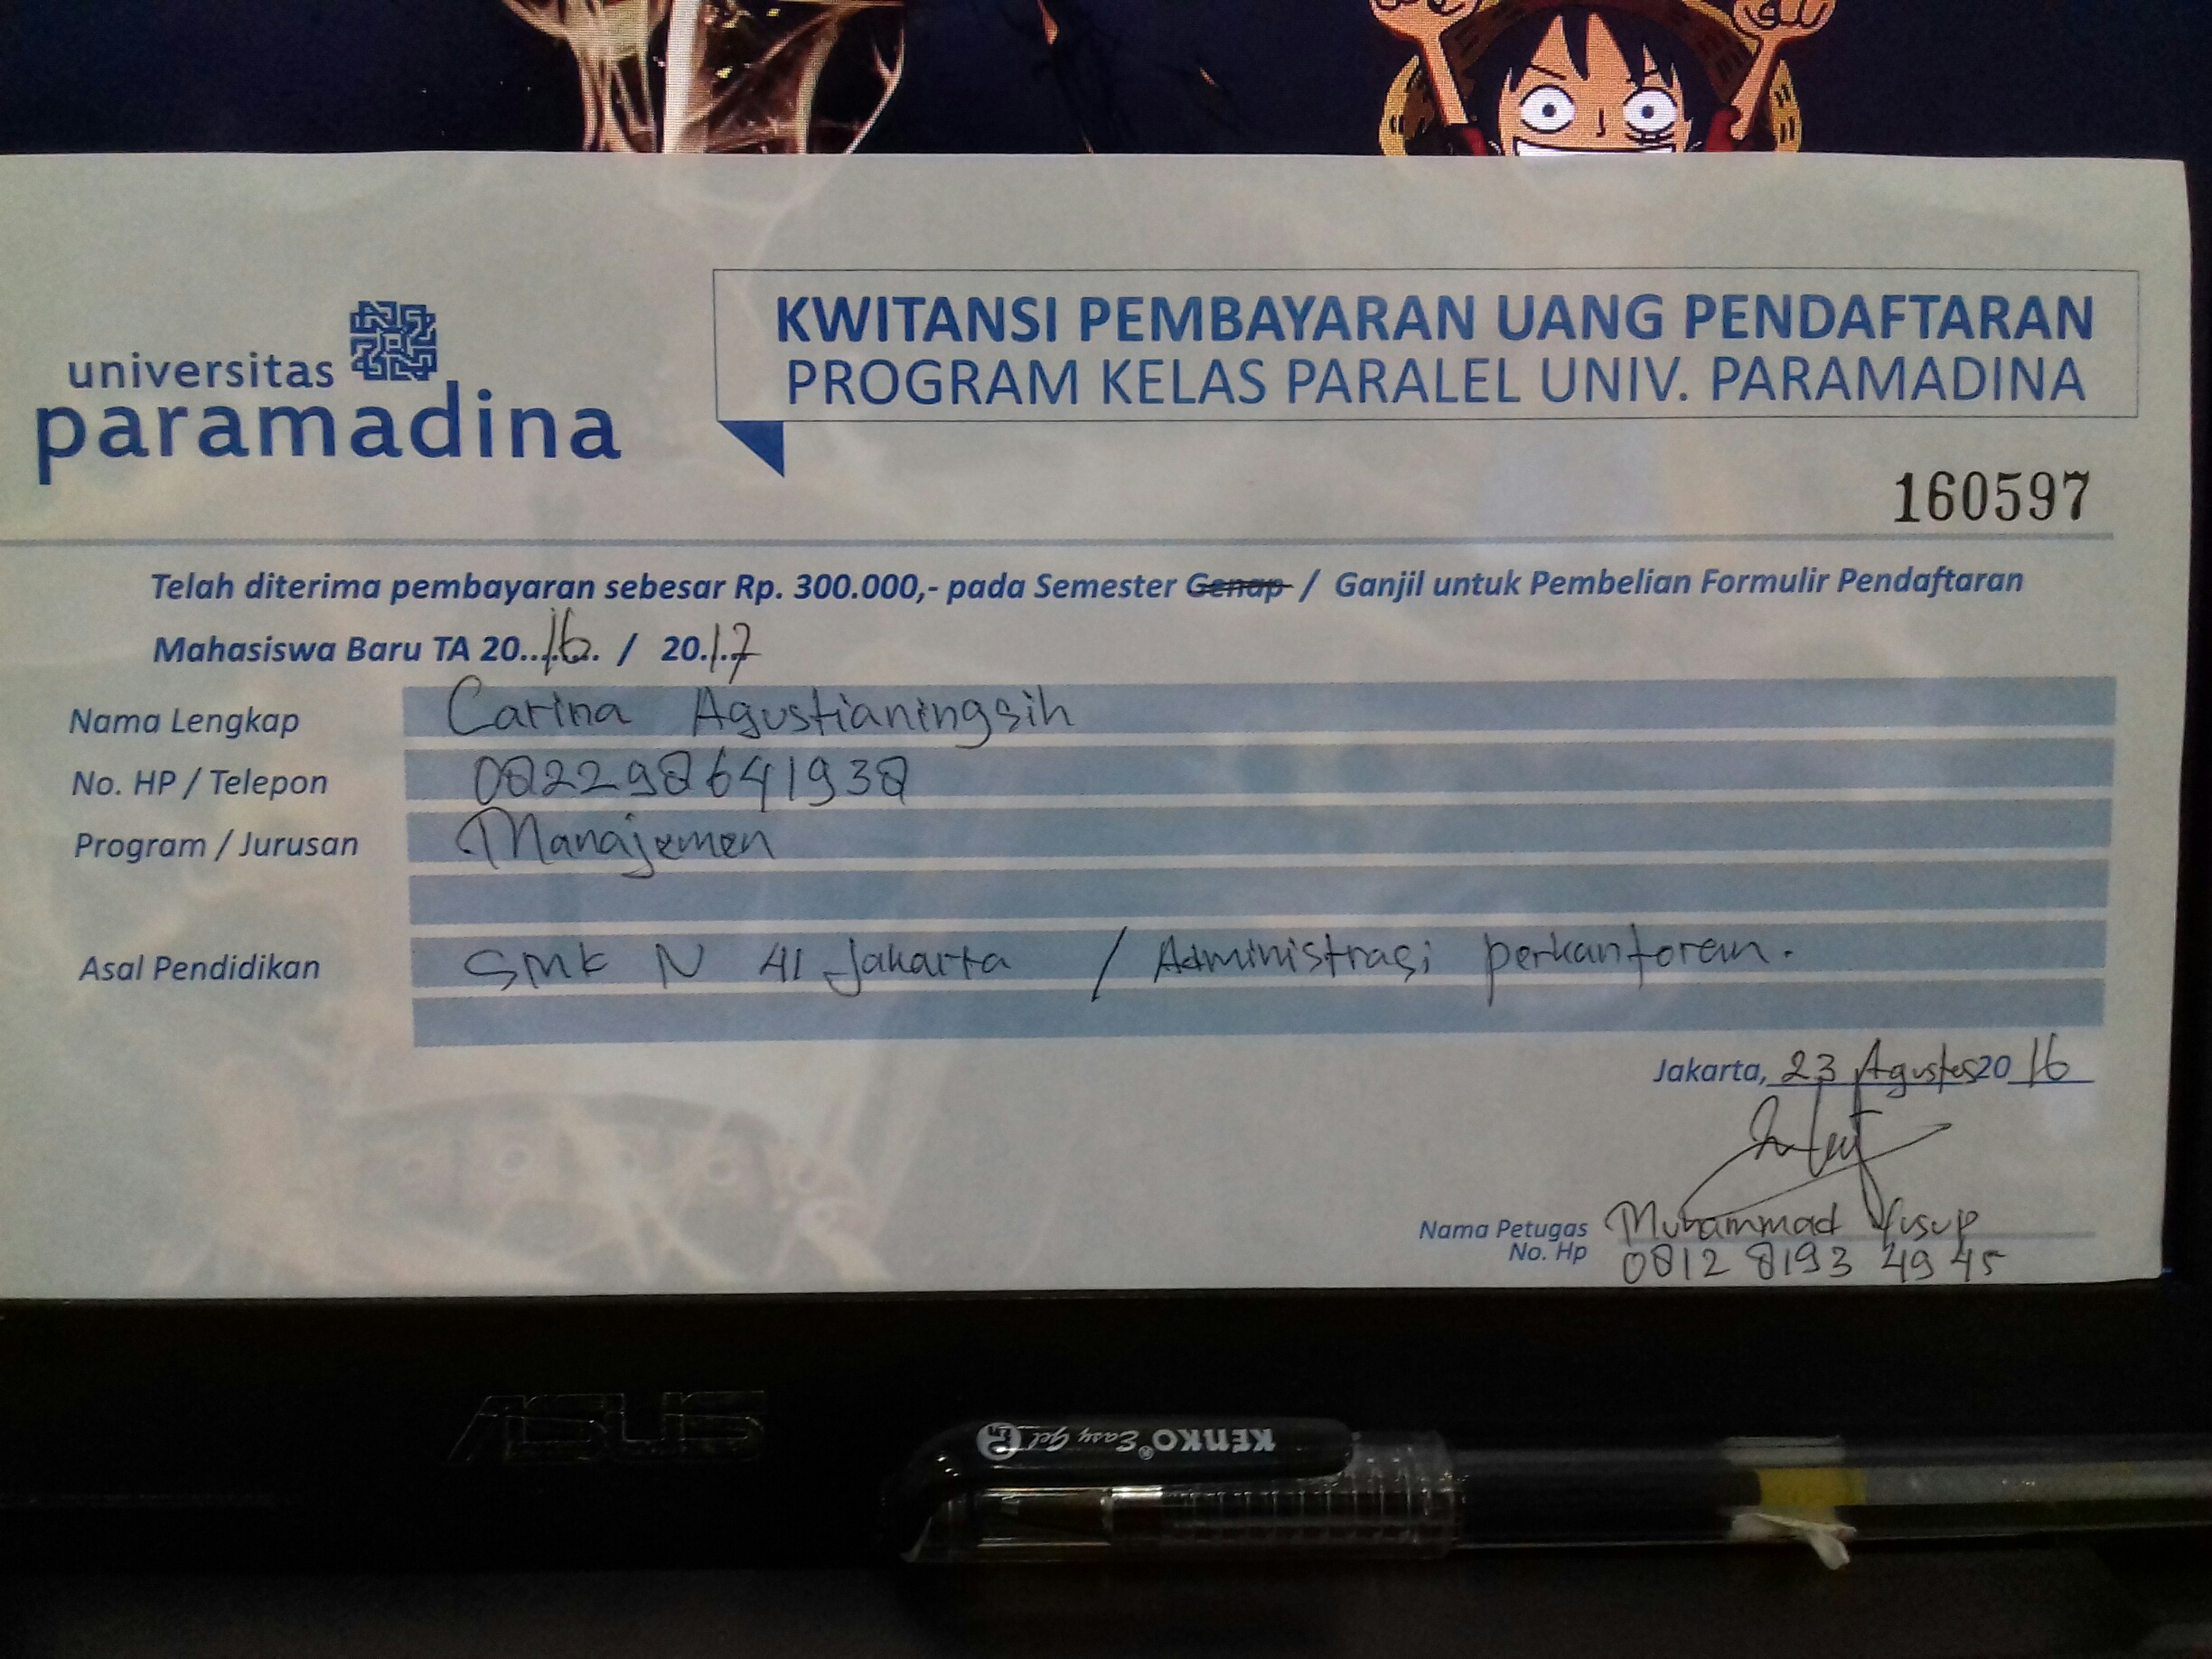 universitas
paramadina
KWITANSI PEMBAYARAN UANG PENDAFTARAN
PROGRAM KELAS PARALEL UNIV. PARAMADINA
160597
Telah diterima pembayaran sebesar Rp. 300.000,- pada Semester Genap / Ganjil untuk Pembelian Formulir Pendaftaran
Mahasiswa Baru TA 20..16.. / 20.17
Nama Lengkap Carina Agustianingsih
No. HP / Telepon 082298641938
Program / Jurusan Manajemen
Asal Pendidikan SMK N 41 Jakarta / Administrasi perkantoran.
Jakarta, 23 Agustus 2016
Nama Petugas Muhammad Yusup
No. Hp 0812 8193 4945
ASUS
KENKO® Easy Gel